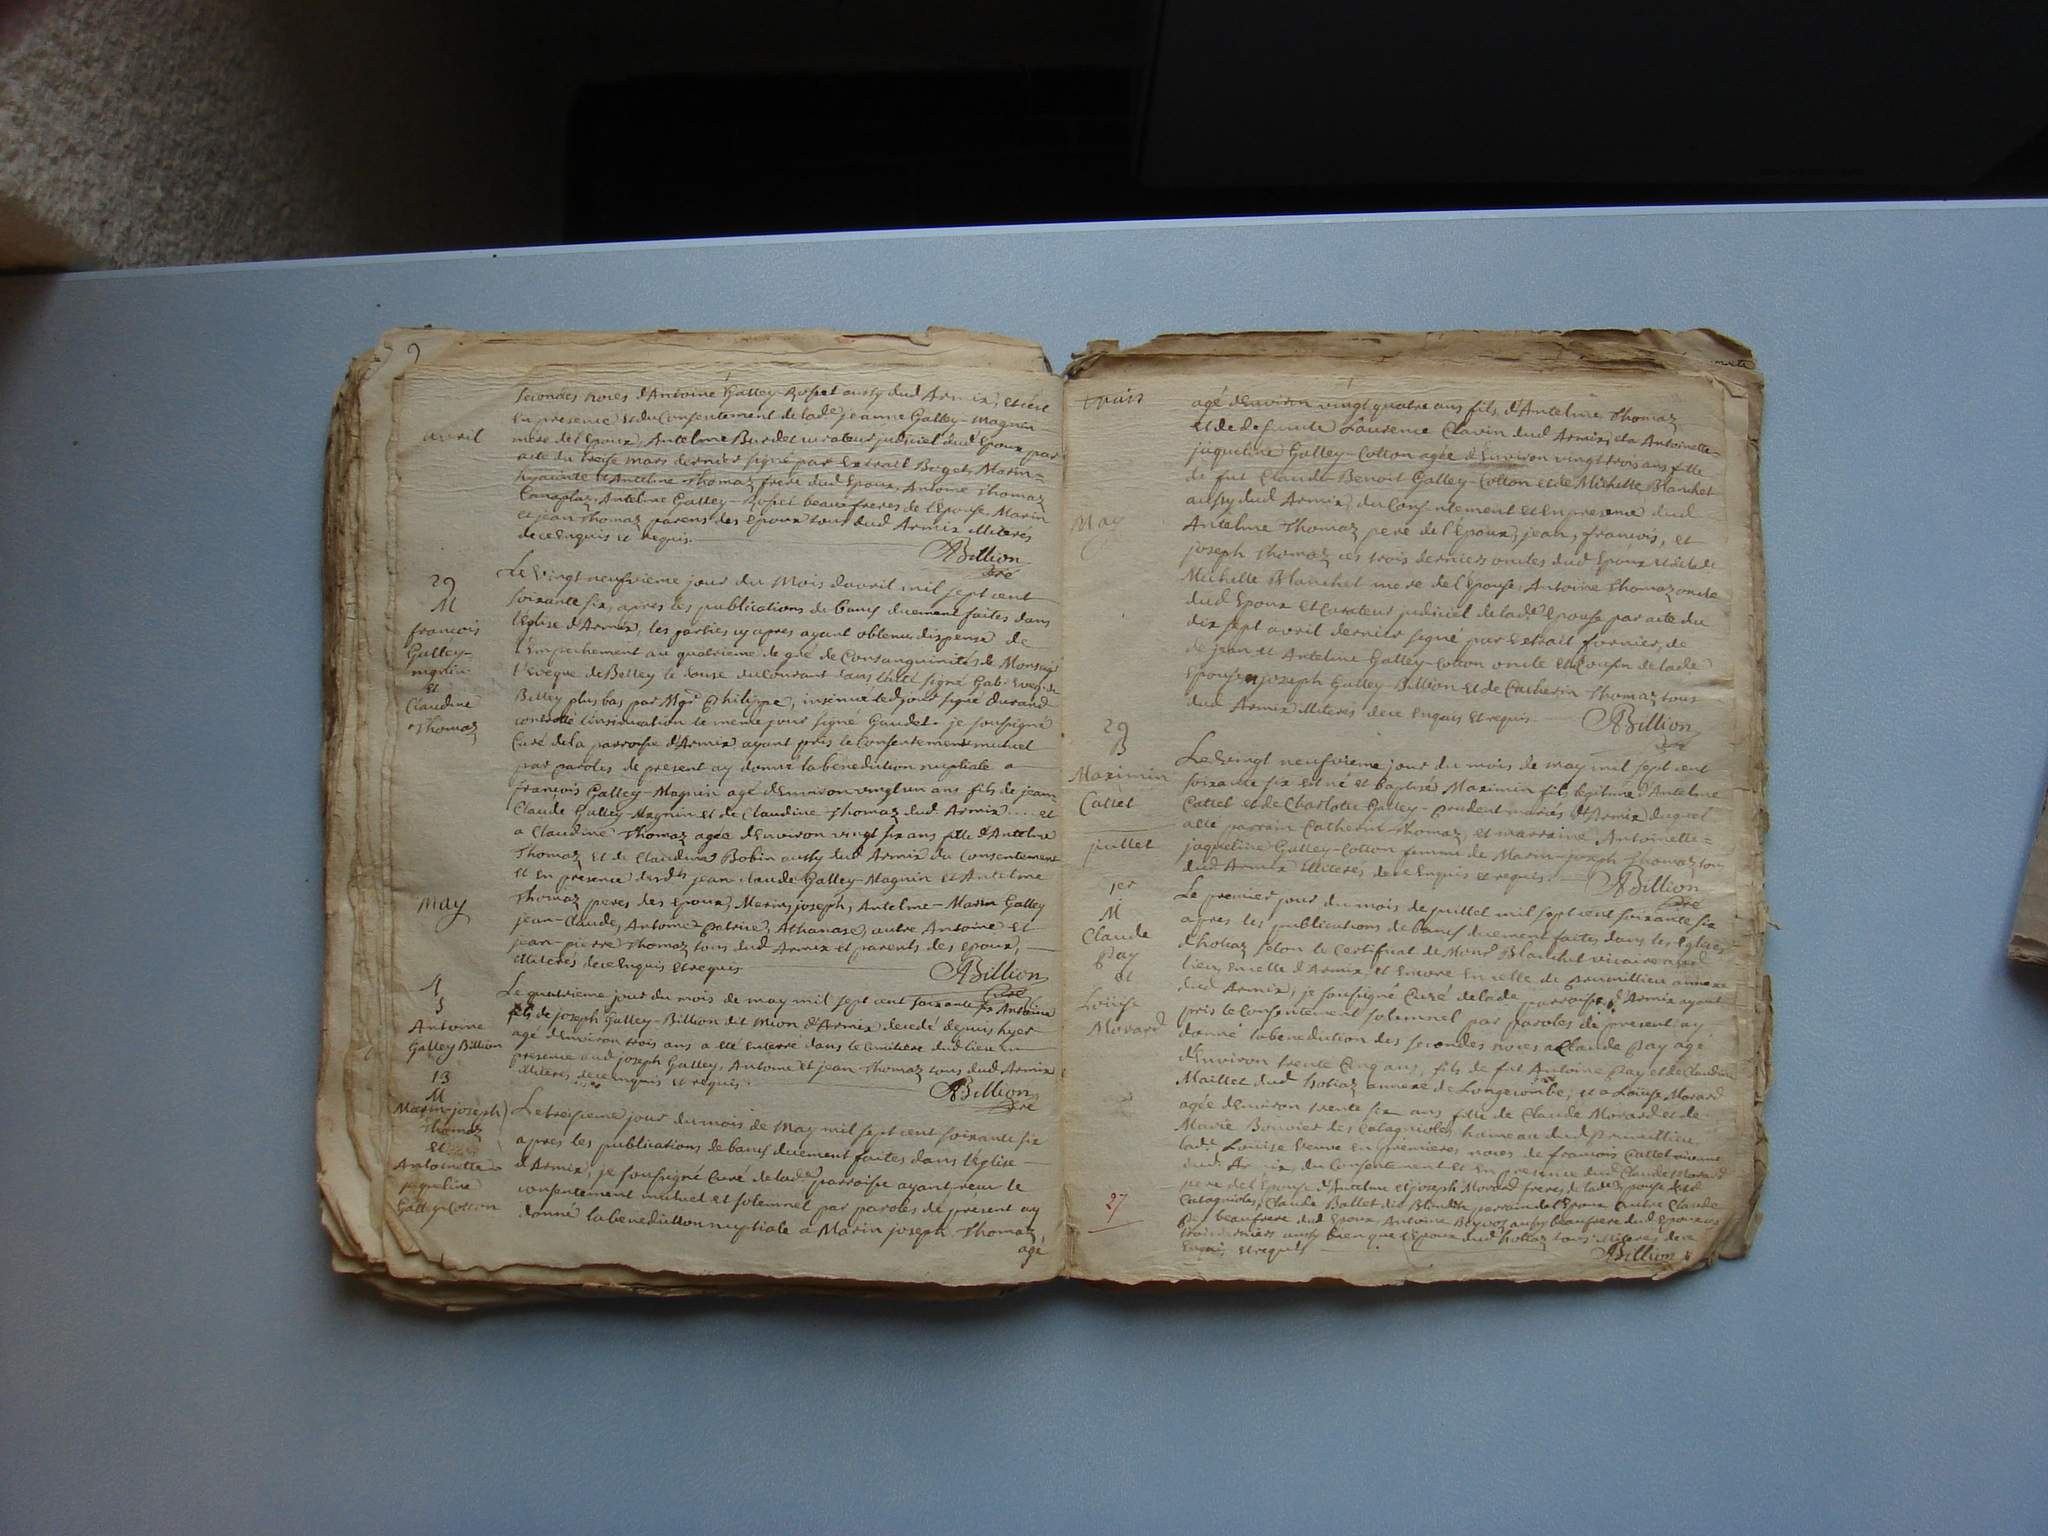 secondes noces d'Antoine Galley-Rosset aussy dud Armix, et c'est
en presence et du Consentement de lad.e jeanne Galley-Magnin
avril
mere de l'Epoux, Antelme Burdet curateur judiciel dud Epoux par
acte du treise mars dernier signé par extrait Beget, Marin=
hyacinte et Anteline Thomaz frere dud Epoux, Antoine Thomaz
Antelme Galley-Rosset beaux freres de l'Epouse, Marin
et jean Thomaz parens des epoux tous dud Armix illiteres
de ce Enquis et requis.
ABillion
curé
29
M
francois
Galley-
mgnin
et
Claudine
Thomaz
Le vingt neufvieme jour du Mois d'avril mil sept cent
soixante six, apres les publications de bancs duement faites dans
l'Eglise d'Armix, les parties cy apres ayant obtenu dispense de
l'Empechement au quatrieme degré de Consanguinités de Monseigr
l'Eveque de Belley le douse du Courant dans l'acte signé Gab. Eveq. de
Belley plus bas par Mgr Philippe, insinué led jour signé Durand
controllé l'insinuation le meme jour signé Gaudet. je soussigné
Curé de la parroisse d'Armix ayant pris le Consentement mutuel
par paroles de present ay donné la benediction nuptiale a
françois Galley-Magnin agé d'Environ vingt un ans fils de jean=
Claude Galley-Magnin et de Claudine Thomaz dud Armix .... et
a Claudine Thomaz agée d'Environ vingt six ans fille d'Antelme
Thomaz et de Claudine Bobin aussy dud Armix du Consentement
et En presence desdts jean-claude Galley-Magnin et Antelme
May
Thomaz peres des epoux, Marin, joseph, Antelme-Marin Galley
jean-Claude, Antoine Patrice, Athanase, autre Antoine et
jean-pierre Thomaz tous dud Armix et parents des epoux,
illiterés de ce Enquis et requis
ABillion
Curé
4
S
Antoine
Galley Billion
Le quatrieme jour du mois de may mil sept cent soixante six Antoine
fils de joseph Galley-Billion dit Mion d'Armix decedé depuis hyer
agé d'Environ trois ans a eté enterré dans le cimitiere dud lieu en
presence dud joseph Galley, Antoine et jean Thomaz tous dud Armix
illiteres de ce enquis et requis
ABillion
Curé
13
M
Marin-joseph
Thomaz
et
Antoinette
jaqueline
Galley-Cotton
Le treisieme jour du mois de May mil sept cent soixante six
apres les publications de bancs duement faites dans l'Eglise
d'Armix, je soussigné Curé de lade parroisse ayant reçu le
consentement mutuel et solemnel par paroles de present ay
donné la benediction nuptiale a Marin joseph Thomaz
agé
agé d'Environ vingt quatre ans fils d'Antelme Thomaz
et de defunte Laurence Clavin dud Armix, et a Antoinette=
jaqueline Galley-Cotton agée d'Environ vingt trois ans fille
de fut Claude Benoit Galley-Cotton et de Michelle Blanchet
aussy dud Armix, du Consentement et En presence dud
May
Antelme Thomaz pere de l'Epoux, jean, francois, et
joseph Thomaz ces trois derniers oncles dud Epoux et de lade
Michelle Blanchet mere de l'Epouse, Antoine Thomaz oncle
dud Epoux et Curateur judiciel de lade Epouse par acte du
dix sept avril dernier signé par extrait fornier, de
de jean et Antelme Galley-Cotton oncle et Cousin de lade
Epouse, joseph Galley-Billion et de Catherin Thomaz tous
dud Armix illiteres de ce Enquis et requis
ABillion
29
B
Maximin
Cattet
Le vingt neufvieme jour du mois de may mil sept cent
soixante six est né et baptisé Maximin fils legitime d'Antelme
Cattet et de Charlotte Galley-Prudent mariés d'Armix duquel
a eté parrain Catherin Thomaz, et marraine Antoinette=
juillet
jaqueline Galley-Cotton femme de Marin-joseph Thomaz tous
dud Armix illiteres de ce Enquis et requis
ABillion
Curé
1er
M
Claude
Pay
et
Loüise
Morard
Le premier jour du mois de juillet mil sept cent soixante six
apres les publications de bancs duement faites dans les Eglises
d'hotiaz selon le certificat de Monsr Blanchet vicaire aud
lieu, en celle d'Armix, et encore En celle de prumillieu annexe
dud Armix, je soussigné Curé de lade parroisse d'Armix ayant
pris le Consentement solemnel par paroles de present ay
donné la benediction des secondes noces a Claude Pay agé
d'Environ trente Cinq ans, fils de fut Antoine Pay et de Claudine
Maillet dud hotiaz annexe de Longecombe, et a Loüise Morard
agée d'Environ trente six ans fille de Claude Morard et de
Marie Bonvier des Catagnioles hameau dud prumillieu
lade Louise veuve en premieres noces de francois Cattet
dud Armix, du Consentement et En presence dud Claude Morard
pere de l'Epouse, d'Antelme et joseph Morard freres de lade Epouse
27
Catagnioles, Claude Ballet dit Blondin parrain de l'Epoux, autre Claude
beaufrere dud Epoux, Antoine aussy beaufrere dud epoux
trois derniers aussy bien que l'Epoux dud hotiaz tous illiteres de ce
Enquis et requis
ABillion